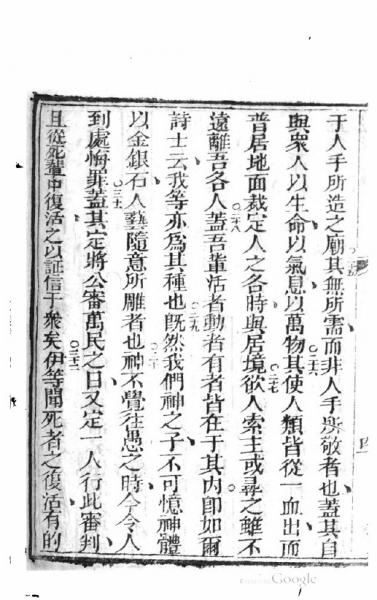 于人手所造之廟其無所需而非人手崇敬者也蓋其自
與衆人以生命以氣息以萬物其使人類皆從一血出而
普居地面裁定人之各時與居境欲人索主或尋之雖不
遠離吾各人蓋吾輩活者動者有者皆在于其内即如爾
詩士云我等亦爲其種也既然我們神之子不可憶神體
以金銀石人藝隨意所雕者也神不覺往愚之時今令人
到處悔罪蓋其定將公審萬民之日又定一人行此審判
且從死輩中復活之以証信于衆矣伊等聞死者之復活有的
Google